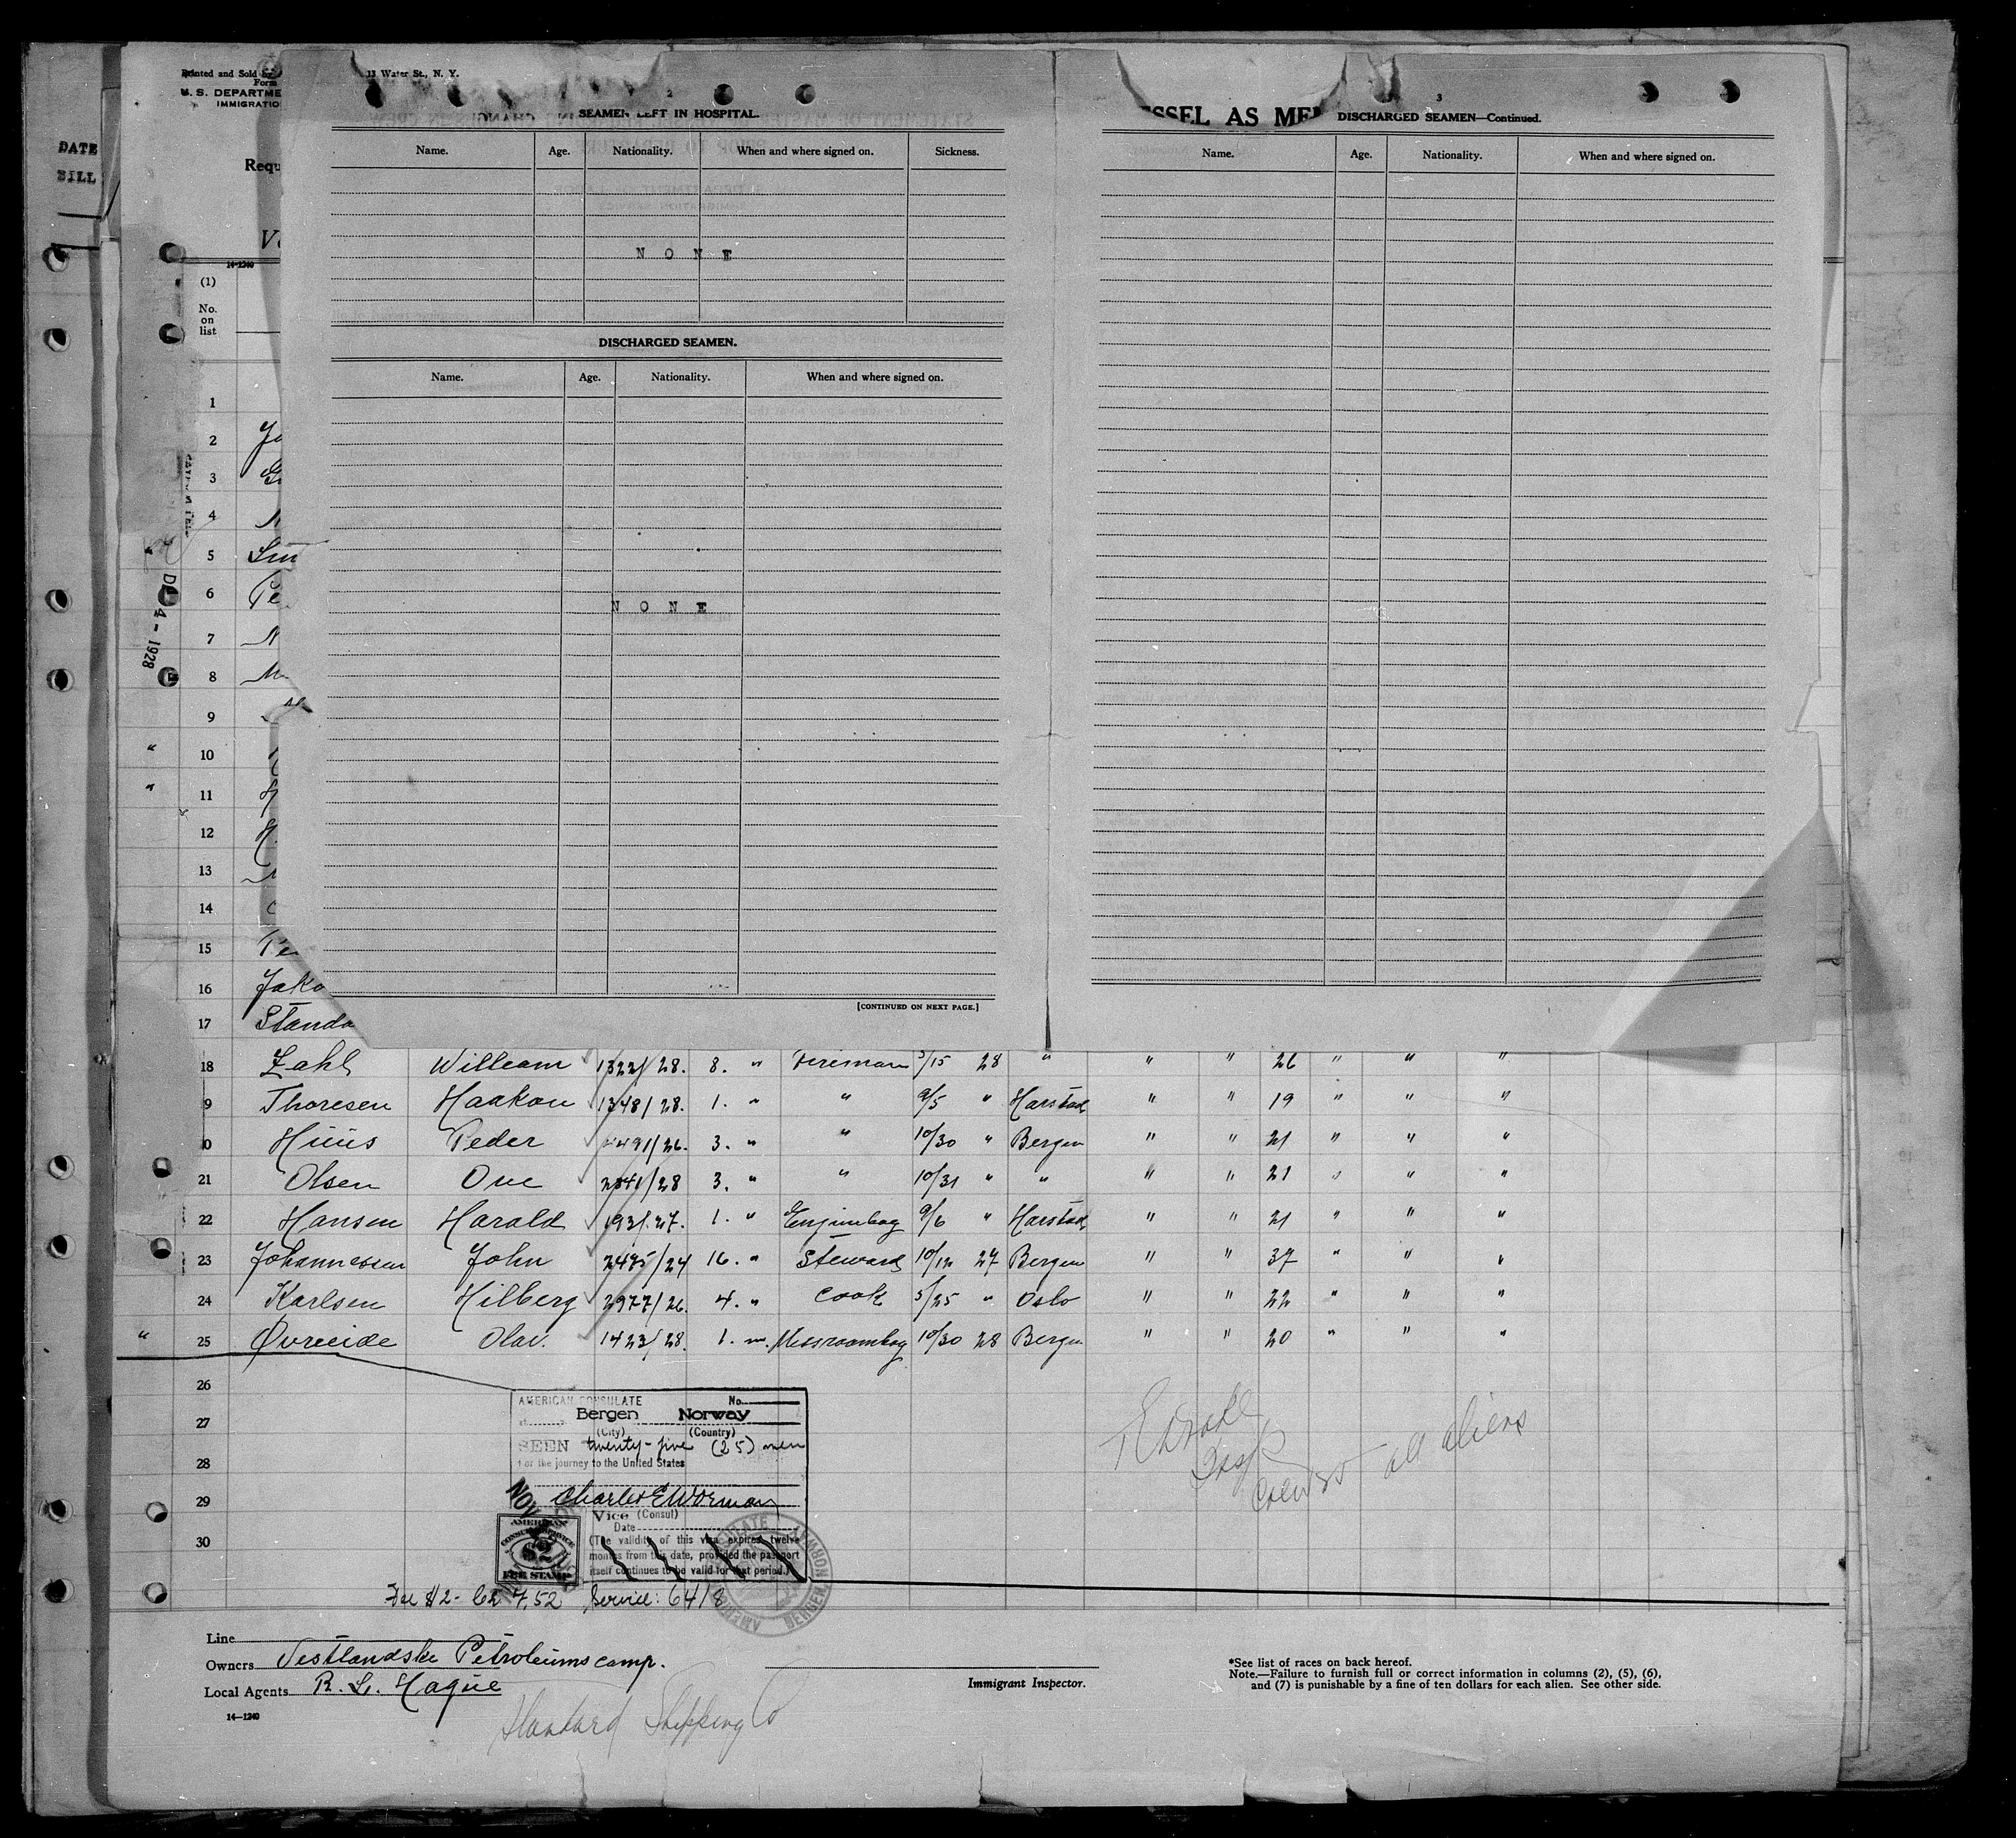 DATE
BILL
Printed and Sold by
13 Water St., N. Y.
Form
U. S. DEPARTME
IMMIGRATIO
Requ
14-1240
(1)
No.
on
list
2
SEAMEN LEFT IN HOSPITAL.
Name. Age. Nationality. When and where signed on. Sickness.
N O N E
DISCHARGED SEAMEN.
Name. Age. Nationality. When and where signed on.
N O N E
[CONTINUED ON NEXT PAGE.]
SSEL AS MEM
3
DISCHARGED SEAMEN—Continued.
Name. Age. Nationality. When and where signed on.
4 - 1928
1
2
3
4
5
6
7
8
9
" 10
" 11
12
13
14
15 Pe
16 Jako
17 Standa
18 Zahl William 1322/28. 8. " Fireman 5/15 28 " " " 26 " " "
9 Thoresen Haakon 1348/28. 1. " " 9/5 " Harstad " " 19 " " "
0 Huus Peder 4491/26. 3. " " 10/30 " Bergen " " 21 " " "
21 Olsen Ove 2541/28 3. " " 10/31 " " " " 21 " " "
22 Hansen Harald 193/.27. 1. " Enginboy 9/6 " Harstad " " 21 " " "
23 Johannessen John 2475/24 16. " Steward 10/12 27 Bergen " " 37 " " "
24 Karlsen Hilberg 2977/26. 4. " Cook 5/25 " Oslo " " 22 " " "
" 25 Øvreeide Olav. 1423/28. 1. m. Messroomboy 10/30 28 Bergen " " 20 " " "
26
27
28
29
30
AMERICAN CONSULATE No.
at Bergen Norway
(City) (Country)
SEEN twenty-five (25) men
For the journey to the United States
NOV
Charles E Worman
Vice (Consul)
Date
(The validity of this visa expires twelve
months from this date, provided the passport
itself continues to be valid for that period.)
AMERICAN
CONSULAR SERVICE
$2
FEE STAMP
Fee $2- 7.52 Service: 6418
all aliens
Line
Owners Vestlandske Petroleumscomp.
Local Agents R. L. Hague
14—1240
Standard Shipping Co
Immigrant Inspector.
*See list of races on back hereof.
Note.—Failure to furnish full or correct information in columns (2), (5), (6),
and (7) is punishable by a fine of ten dollars for each alien. See other side.